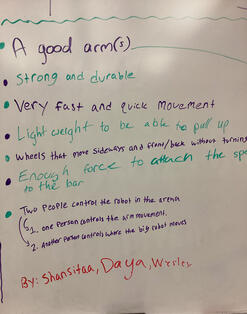 A good arm(s)
Strong and durable
Very fast and quick movement
Light weight to be able to pull up
Wheels that move sideways and front/back without turning
Enough force to attach the
to the bar
Two people control the robot in the arena
1. one person controls the arm movement.
2. Another person controls where the big robot moves
By: Shansitaa, Daya, Wesley